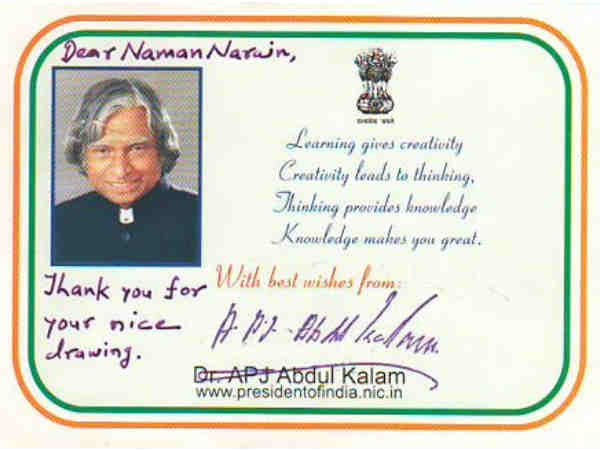 Dear Naman Narain,
सत्यमेव जयते
Learning gives creativity
Creativity leads to thinking,
Thinking provides knowledge
Knowledge makes you great.
With best wishes from:
Thank you for
your nice
drawing.
A.P.J. Abdul Kalam
Dr. APJ Abdul Kalam
www.presidentofindia.nic.in